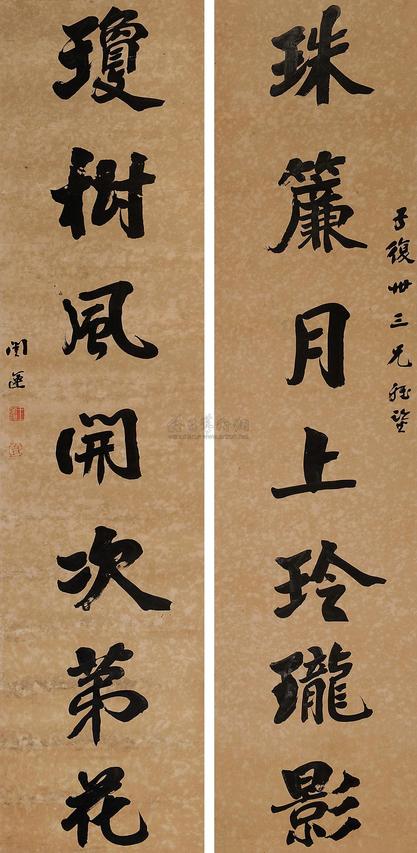 子復卅三兄雅鑒
珠簾月上玲瓏影
瓊樹風開次第花
闓運